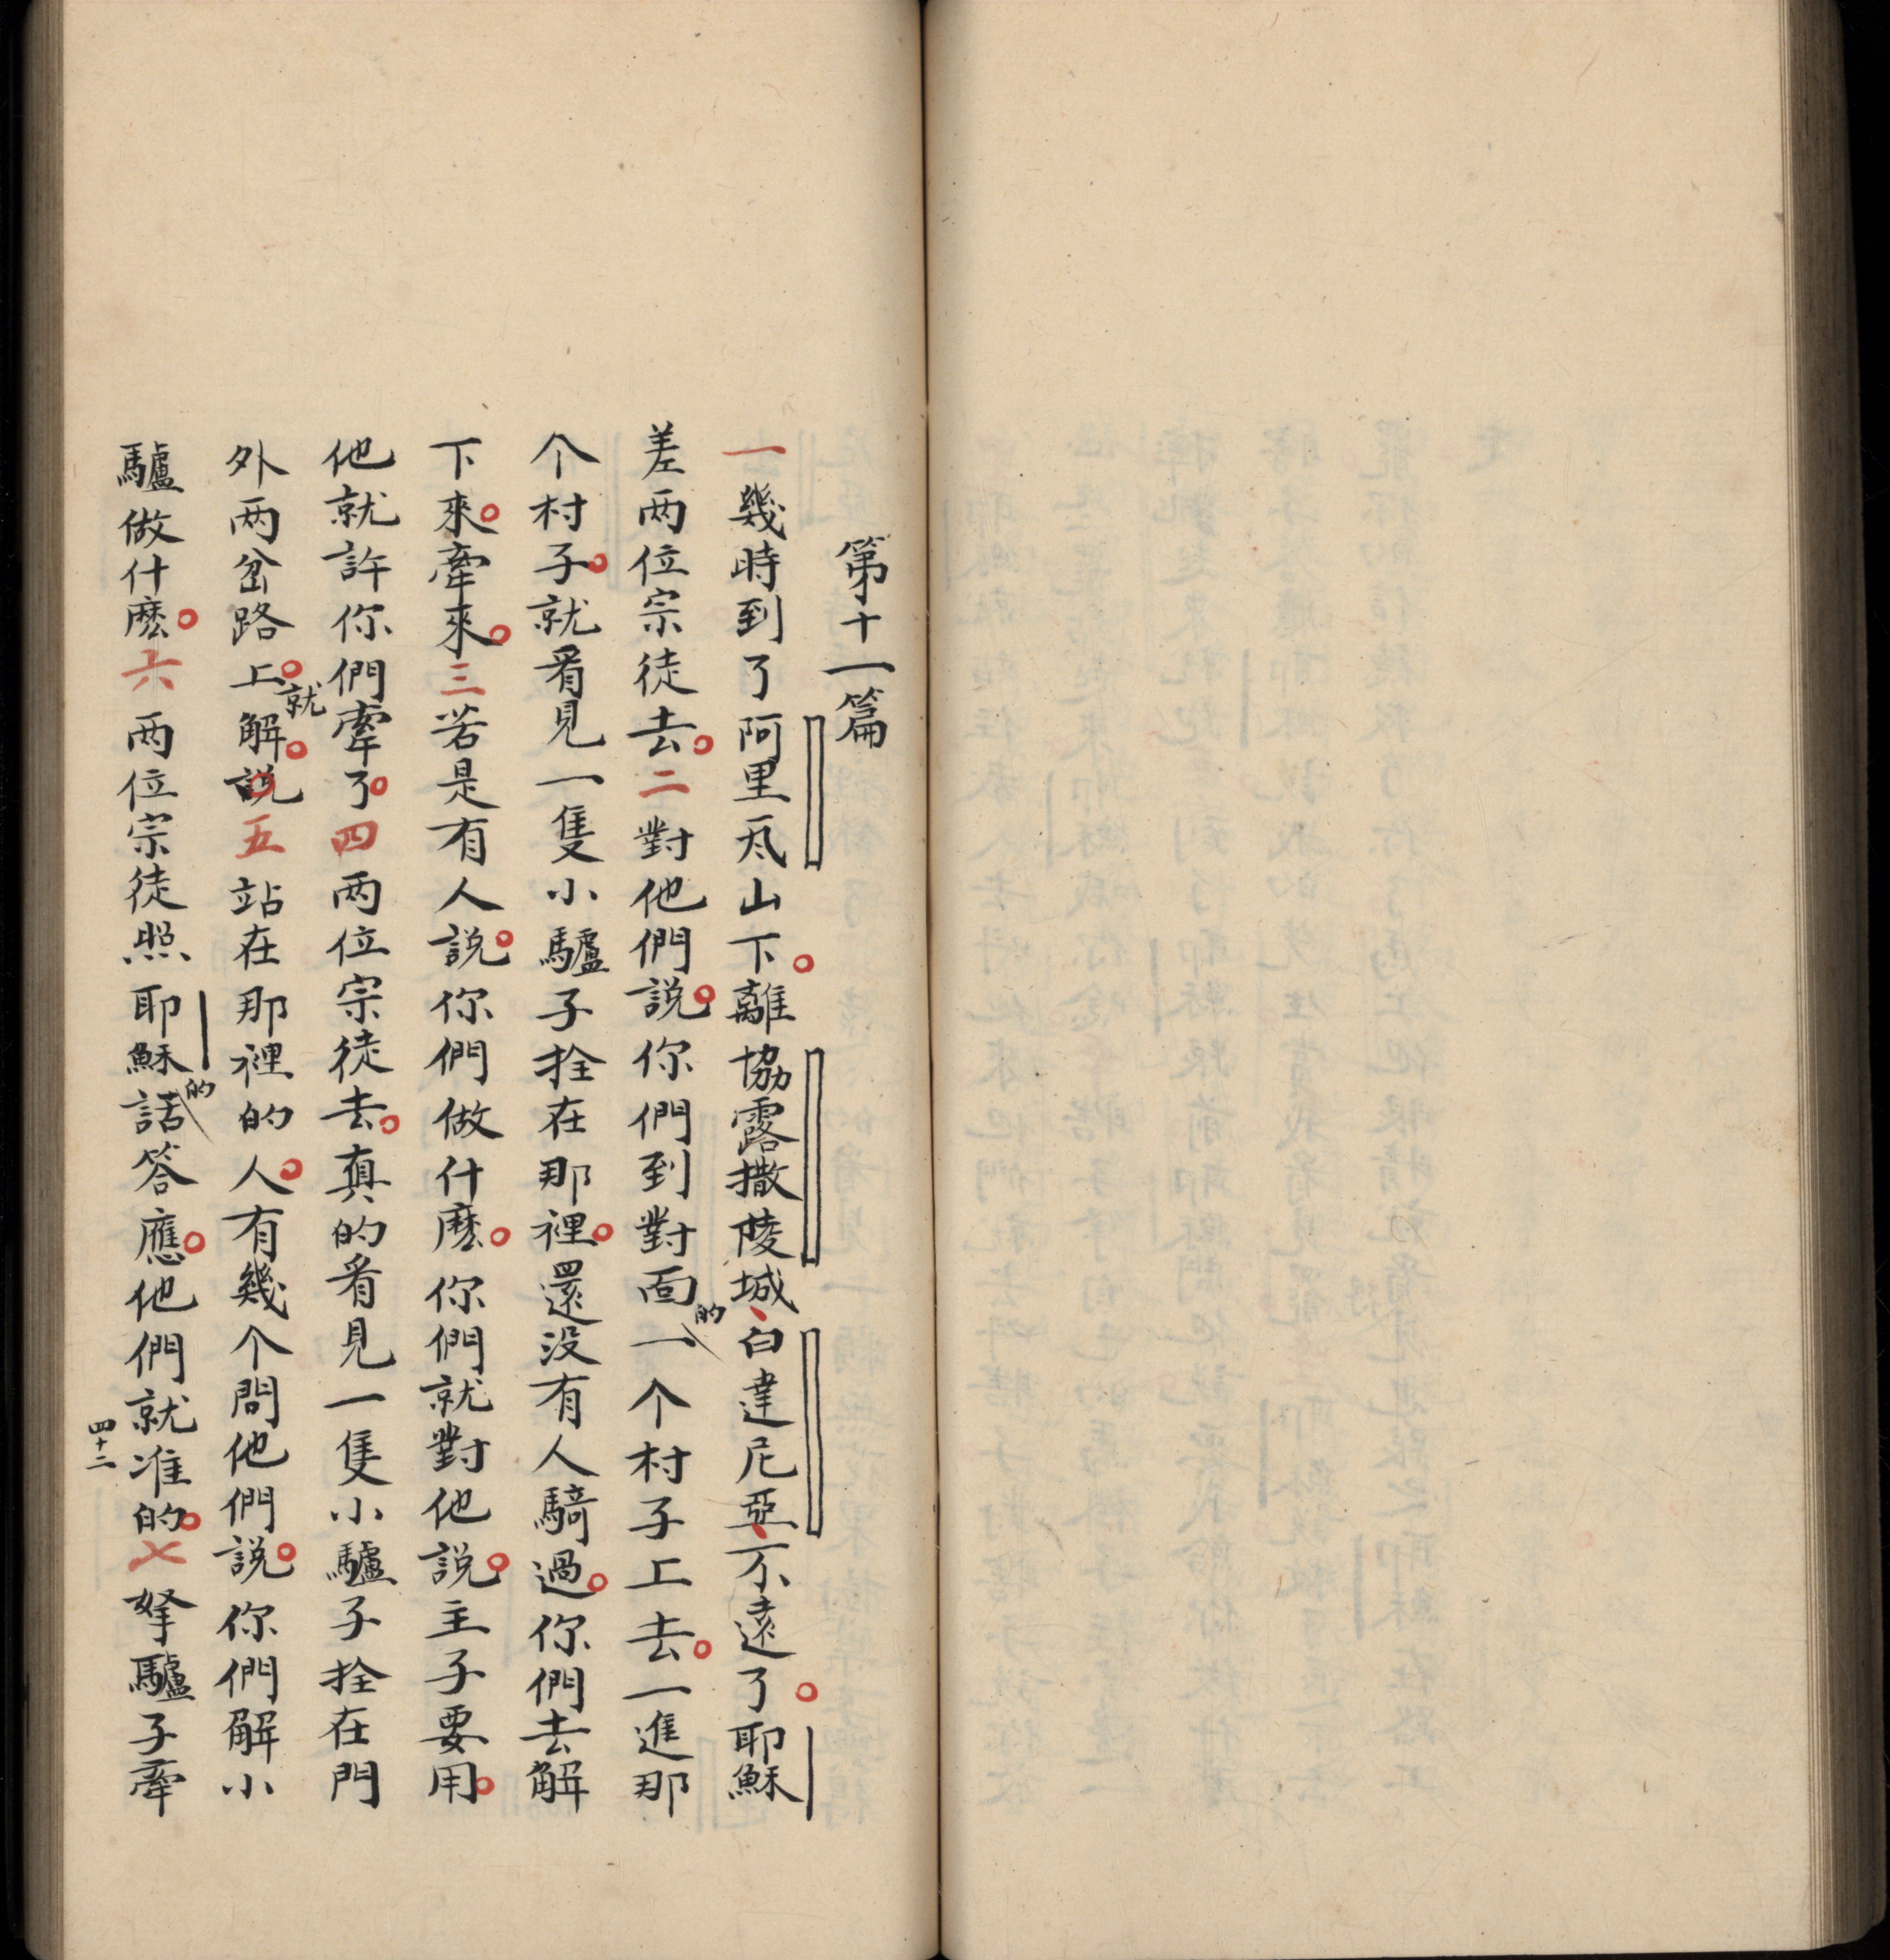 第十一篇
一幾時到了阿里凨山下。離協露撒陵城、白達尼亞、不遠了。耶穌
差两位宗徒去。二對他們說。你們到對面的一个村子上去。一進那
个村子。就看見一隻小驢子拴在那裡。還没有人騎過。你們去解
下來。牽來。三若是有人說。你們做什麽。你們就對他說。主子要用。
他就許你們牽了。四两位宗徒去。真的看見一隻小驢子拴在門
外两岔路上。就解。說五站在那裡的人。有幾个問他們說。你們解小
驢做什麽。六两位宗徒照耶穌的話答應。他們就准的。七拏驢子牽
四十二